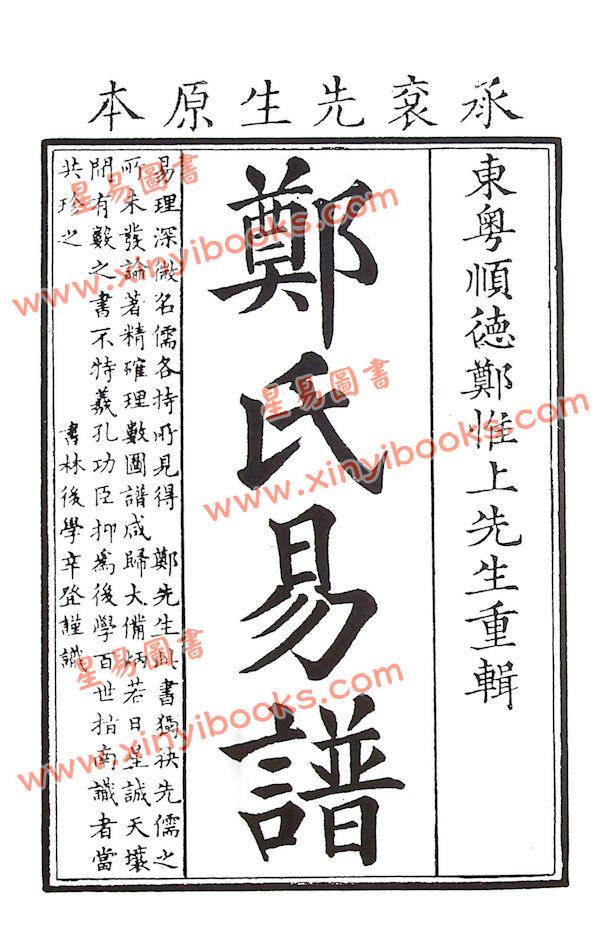 承袞先生原本
東粵順德鄭惟上先生重輯
鄭氏易譜
易理深微名儒各持所見得　鄭先生此書獨抉先儒之
所未發論著精確理數圖譜咸歸大備炳若日星誠天壤
間有數之書不特羲孔功臣抑為後學百世指南識者當
共珍之　書林後學辛登謹識
星易圖書
www.xinyibooks.com
星易圖書
www.xinyibooks.com
星易圖書
www.xinyibooks.com